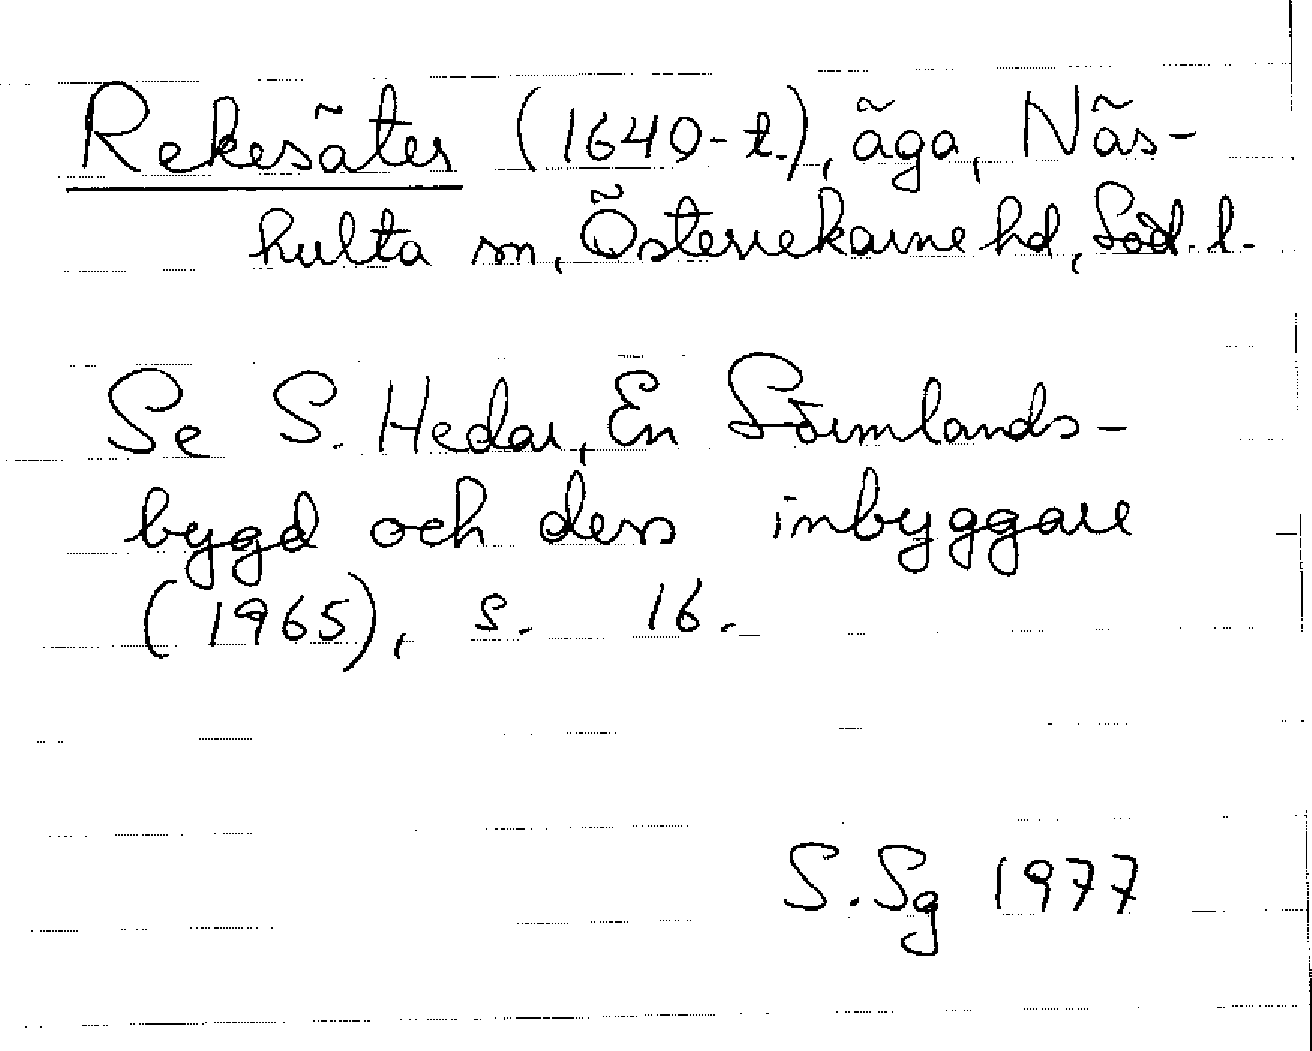 Rekesäter (1640-t.), äga, Näs-
hulta sn, Österrekarne hd, Söd. l.
Se S. Hedar, En Sörmlands-
bygd och dess inbyggare
(1965), s. 16.
S. Sg 1977